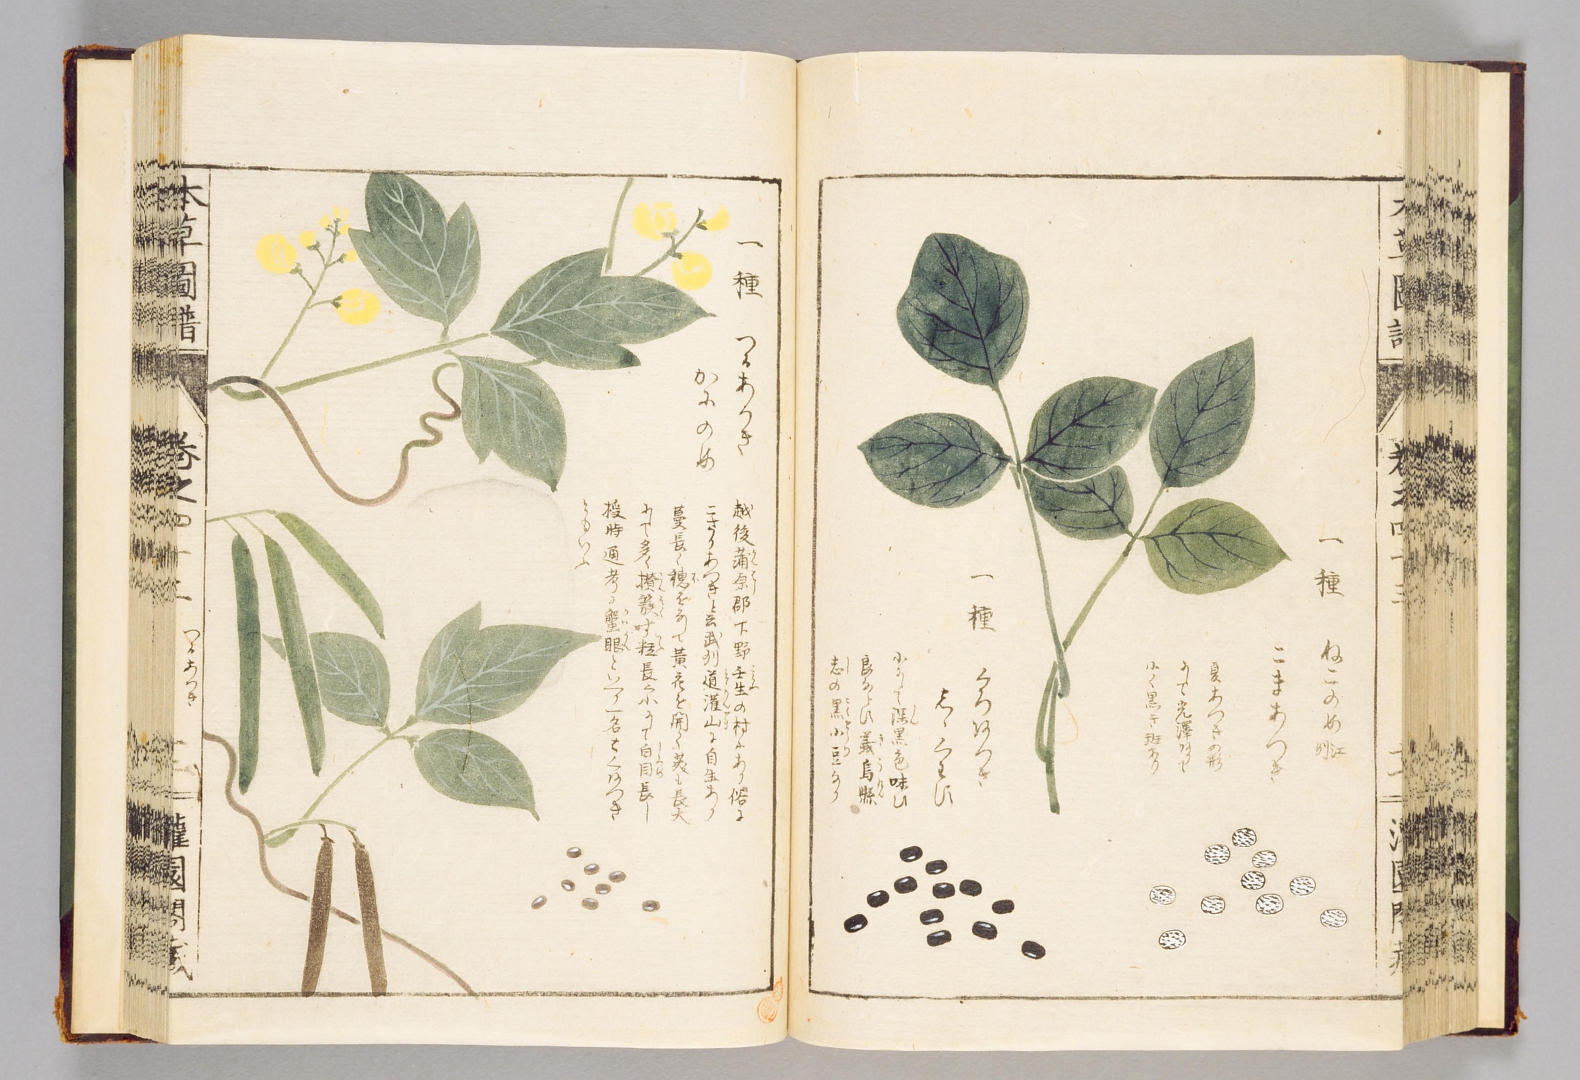 一種 ねこのめ 江州
こまあつき
夏あつきの形
にて光澤ありて
小く黒キ斑あり
一種 くろあつき
小にして深黒色味ひ
良ならひ義烏縣
志の黒小豆なり
一種 つるあつき
かにのめ
越後蒲原郡下野壬生の村にあり俗に
こさりあつきと云武州道灌山に自生あり
蔓長く穂をなして黄花を開く莢も長大
にて多く攅簇す粒長く小にて白目長し
授時通考に蟹眼といフ一名とくあつき
ともいふ
本草圖譜
巻之四十二
つるあつき
灌園閣藏